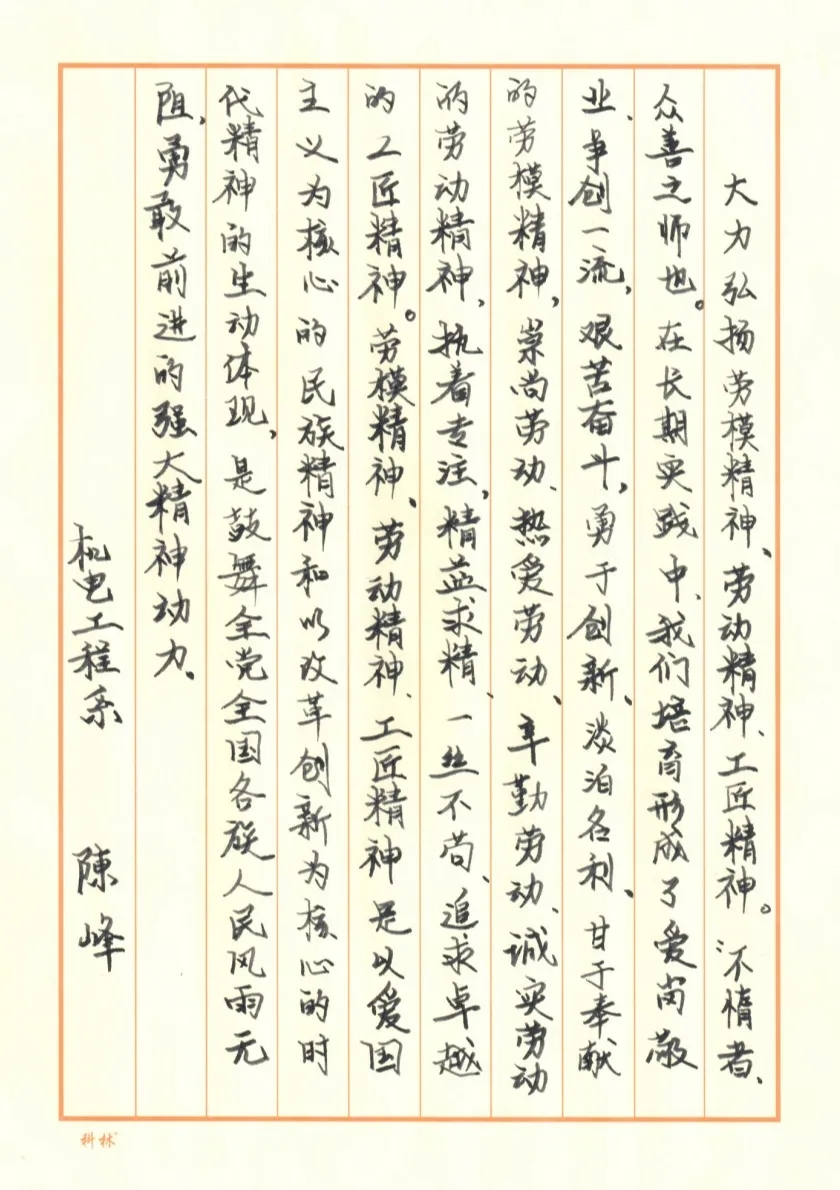 大力弘扬劳模精神、劳动精神、工匠精神。“不惰者、
众善之师也。在长期实践中、我们培育形成了爱岗敬
业、争创一流，艰苦奋斗，勇于创新、淡泊名利、甘于奉献
的劳模精神，崇尚劳动、热爱劳动、辛勤劳动、诚实劳动
的劳动精神，执着专注，精益求精、一丝不苟、追求卓越
的工匠精神。劳模精神、劳动精神、工匠精神是以爱国
主义为核心的民族精神和以改革创新为核心的时
代精神的生动体现，是鼓舞全党全国各族人民风雨无
阻，勇敢前进的强大精神动力。
机电工程系 陳峰
科林